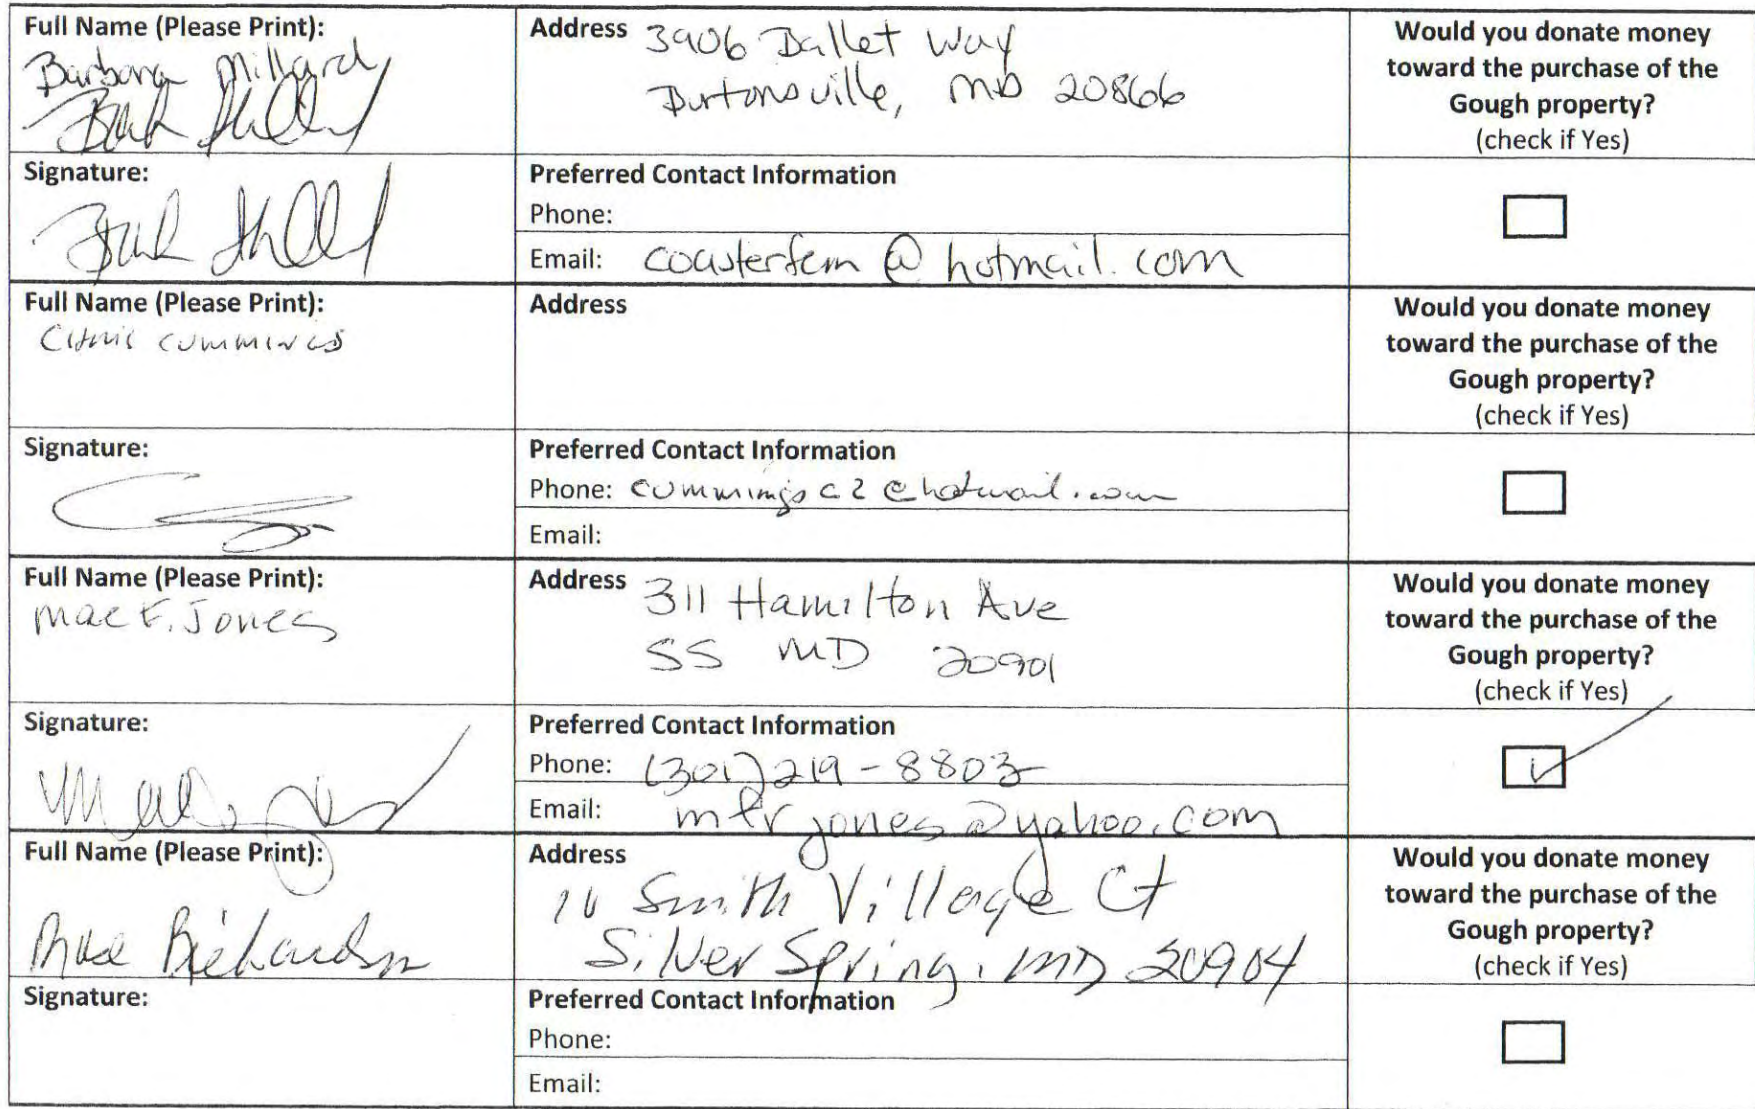 Full Name (Please Print):
Barbara Millard
Address 3906 Ballet Way
Burtonsville, MD 20866
Would you donate money
toward the purchase of the
Gough property?
(check if Yes)
Signature:
Preferred Contact Information
Phone:
Email: coasterfem@hotmail.com
Full Name (Please Print):
cummings
Address
Would you donate money
toward the purchase of the
Gough property?
(check if Yes)
Signature:
Preferred Contact Information
Phone: cummingsc2@hotmail.com
Email:
Full Name (Please Print):
Mae F. Jones
Address 311 Hamilton Ave
SS MD 20901
Would you donate money
toward the purchase of the
Gough property?
(check if Yes)
Signature:
Preferred Contact Information
Phone: (301) 219-8803
Email: mfrjones@yahoo.com
Full Name (Please Print):
Richardson
Address
Smith Village Ct
Silver Spring, MD 20904
Would you donate money
toward the purchase of the
Gough property?
(check if Yes)
Signature:
Preferred Contact Information
Phone:
Email: